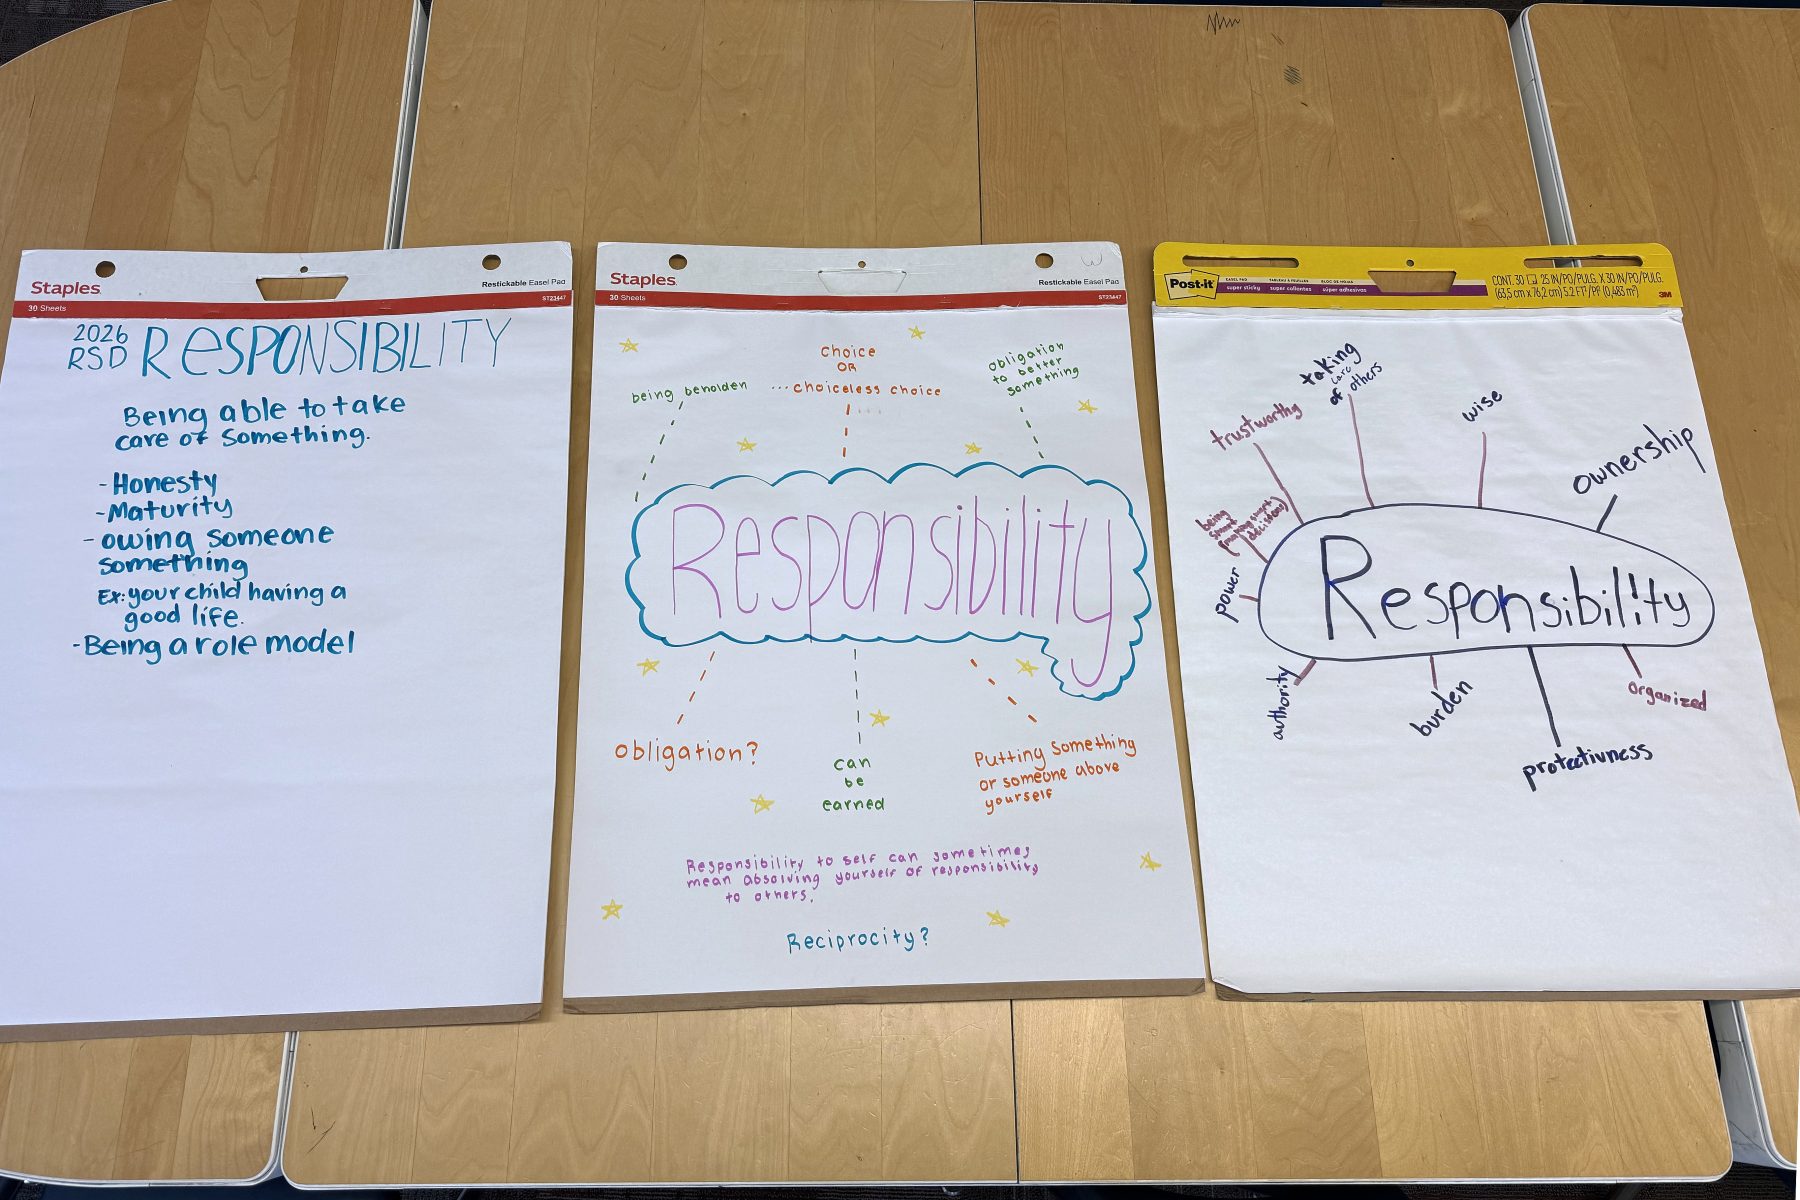 Staples
Restickable Easel Pad
30 Sheets
ST23447
2026
RSD
RESPONSIBILITY
Being able to take
care of something.
- Honesty
- Maturity
- owing someone
something
Ex: your child having a
good life.
- Being a role model
Staples
Restickable Easel Pad
30 Sheets
ST23447
W
Choice
OR
... choiceless choice
being beholden
obligation
to better
something
Responsibility
Obligation?
can
be
earned
Putting something
or someone above
yourself
Responsibility to self can sometimes
mean absolving yourself of responsibility
to others.
Reciprocity?
Post-it
EASEL PAD
super sticky
super collantes
súper adhesivas
CONT. 30 25 IN/PO/PULG. X 30 IN/PO/PULG.
(63,5 cm x 76,2 cm) 5.2 FT²/PI² (0,483 m²)
3M
taking
care
of others
trustworthy
wise
ownership
being
smart
(making smart
decisions)
power
Responsibility
authority
burden
protectivness
organized